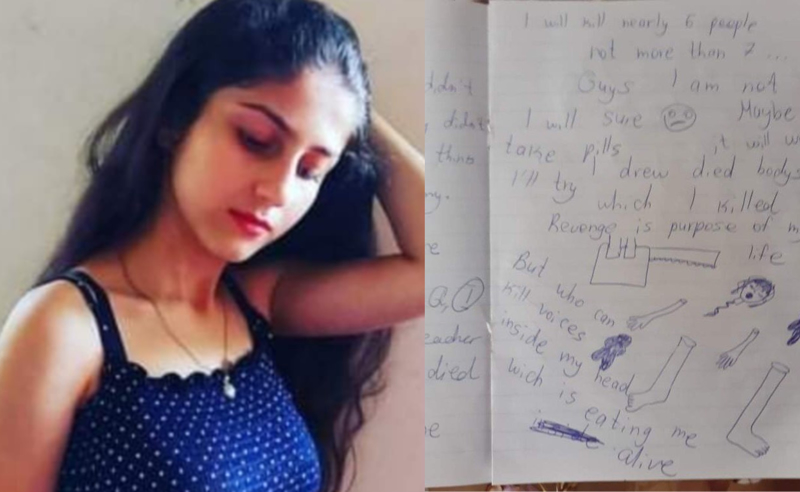 I will kill nearly 6 people
not more than 7 ...
Guys I am not
didn't
I will sure Maybe
didn't
take pills it will w
this
I'll try I drew died bodys
which I killed
ny.
Revenge is purpose of m
life
e
But who can
kill voices
inside my head
wich is
eating me
alive
Q, 1
eacher
died
e